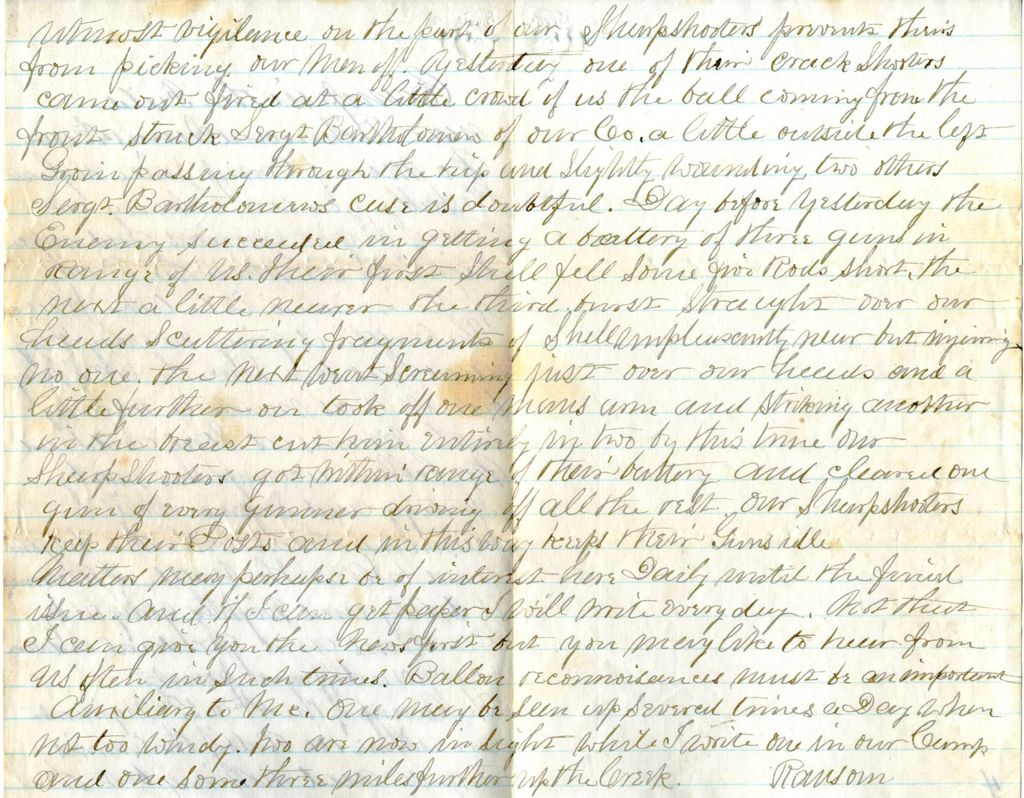 utmost vigilance on the part of our Sharpshooters prevents theirs
from picking our men off. Yesterday one of their crack Shooters
came out fired at a little crowd of us the ball coming from the
front struck Sergt Bartholomew of our Co. a little outside the left
Groin passing through the hip and slightly wounding two others
Sergt. Bartholomews case is doubtful. Day before Yesterday the
Enemy succeeded in getting a battery of three guns in
range of us. Their first Shell fell some five Rods short, the
next a little nearer the third burst straight over our
heads scattering fragments of Shell unpleasantly near but injuring
no one. the next went screaming just over our heads and a
little further on took off one mans arm and striking another
in the breast cut him entirely in two by this time our
Sharpshooters got within range of their battery and cleared one
gun of every gunner driving off all the rest. our Sharpshooters
keep their Posts and in this way keeps their Guns idle
Matters may perhapse be of interest here Daily until the final
issue. and if I can get paper I will write every day. Not that
I can give you the News first but you may like to hear from
us often in such times. Ballon reconnoisances must be an important
Auxiliary to Mc. One may be seen up several times a Day when
not too windy. two are now in sight while I write one in our Camp
and one some three miles further up the Creek. Ransom